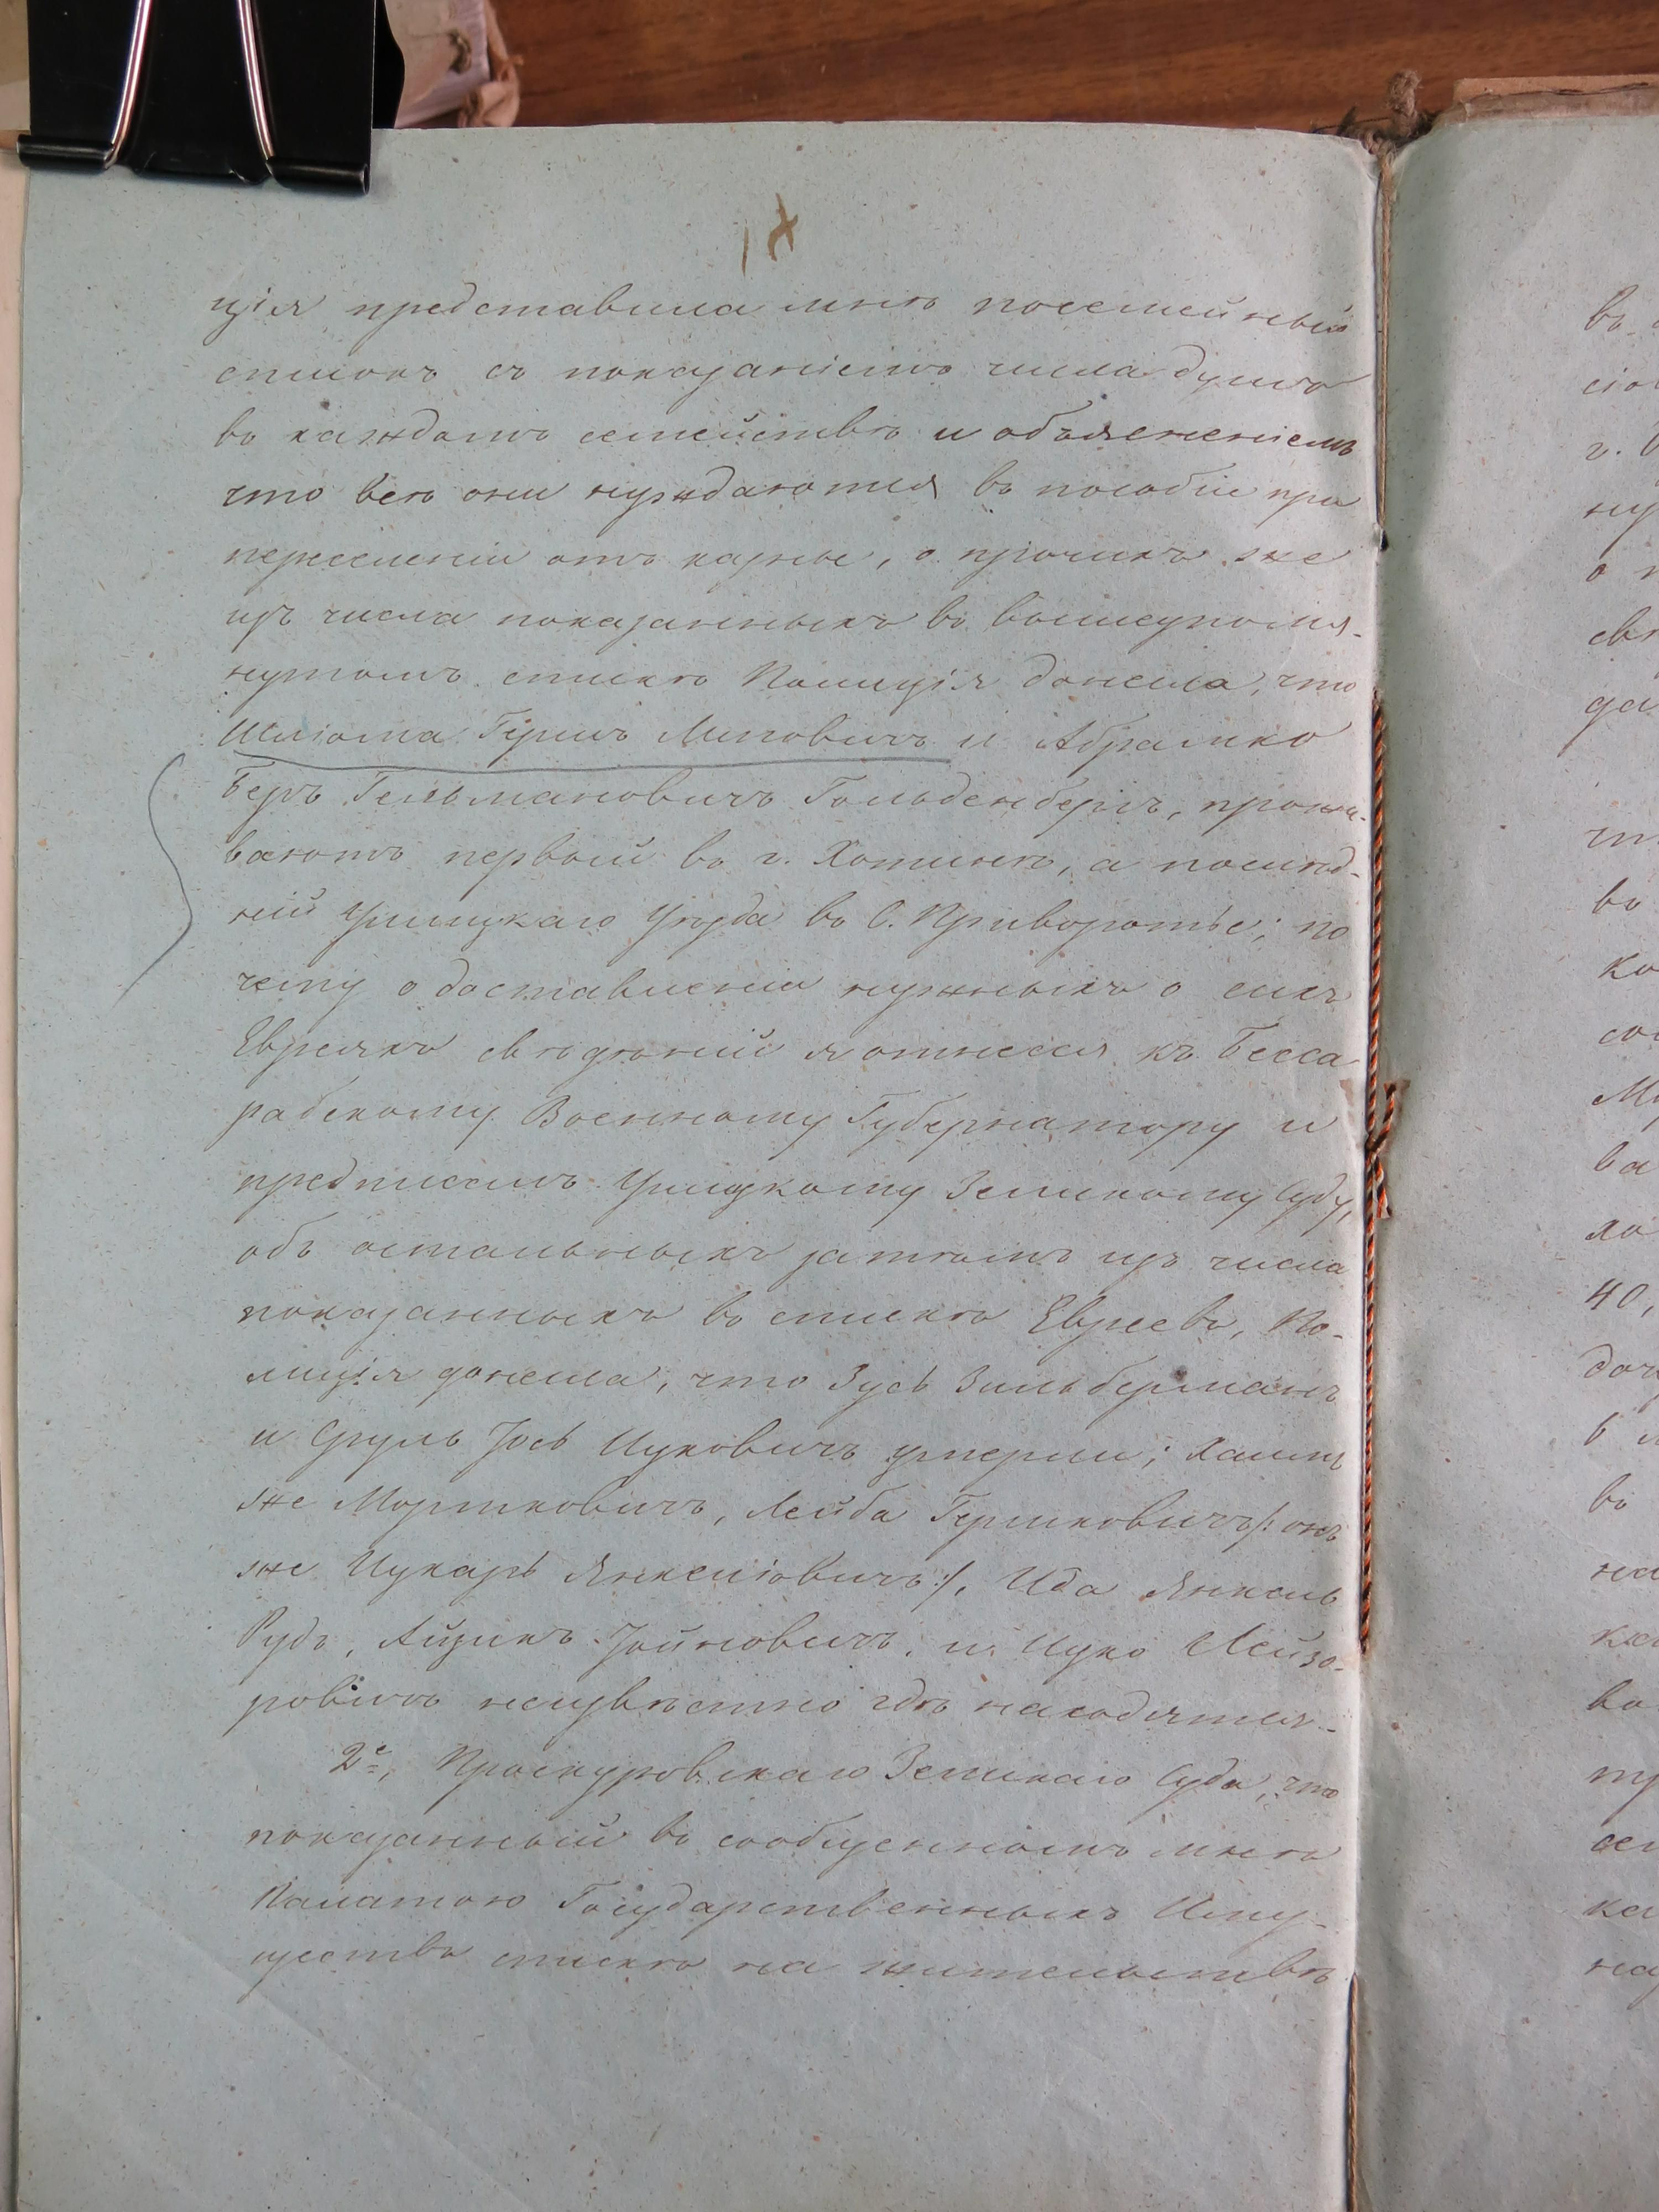 ція представила мнѣ посемейный
списокъ съ показаніемъ числа душъ
въ каждомъ семействѣ и объясненіемъ
что всѣ они нуждаются въ пособіи при
переселеніи отъ казны, о прочихъ же
изъ числа показанныхъ въ вышеупомя-
нутомъ спискѣ Полиція донесла, что
Шліома Гершъ Липовичъ и Абрамко
Беръ Гельмановичъ Гольденбергъ, прожи-
ваютъ первый въ г. Хотинѣ, а послѣд-
ній Ушицкаго Уѣзда въ С. Приворотье; по
чему о доставленіи нужныхъ о сихъ
Евреяхъ свѣдѣній я отнесся къ Бесса
рабскому Военному Губернатору и
предписалъ Ушицкому Земскому Суду,
объ остальныхъ затѣмъ изъ числа
показанныхъ въ спискѣ Евреевъ, По-
лиція донесла, что Зусь Зильберманъ
и Сруль Іось Ицковичъ умерли; Хаимъ
же Мортковичъ, Лейба Гершковичъ /: онъ
же Цукарь Янкеліовичъ :/, Ида Янкель
Рудь, Айзикъ Іойновичъ, и Ицко Лейзо-
ровичъ неизвѣстно гдѣ находятся.
2е, Проскуровскаго Земскаго Суда, что
показанный въ сообщенномъ мнѣ
Палатою Государственныхъ Иму-
ществъ спискѣ на жительствѣ
въ
г.
о
40,
въ